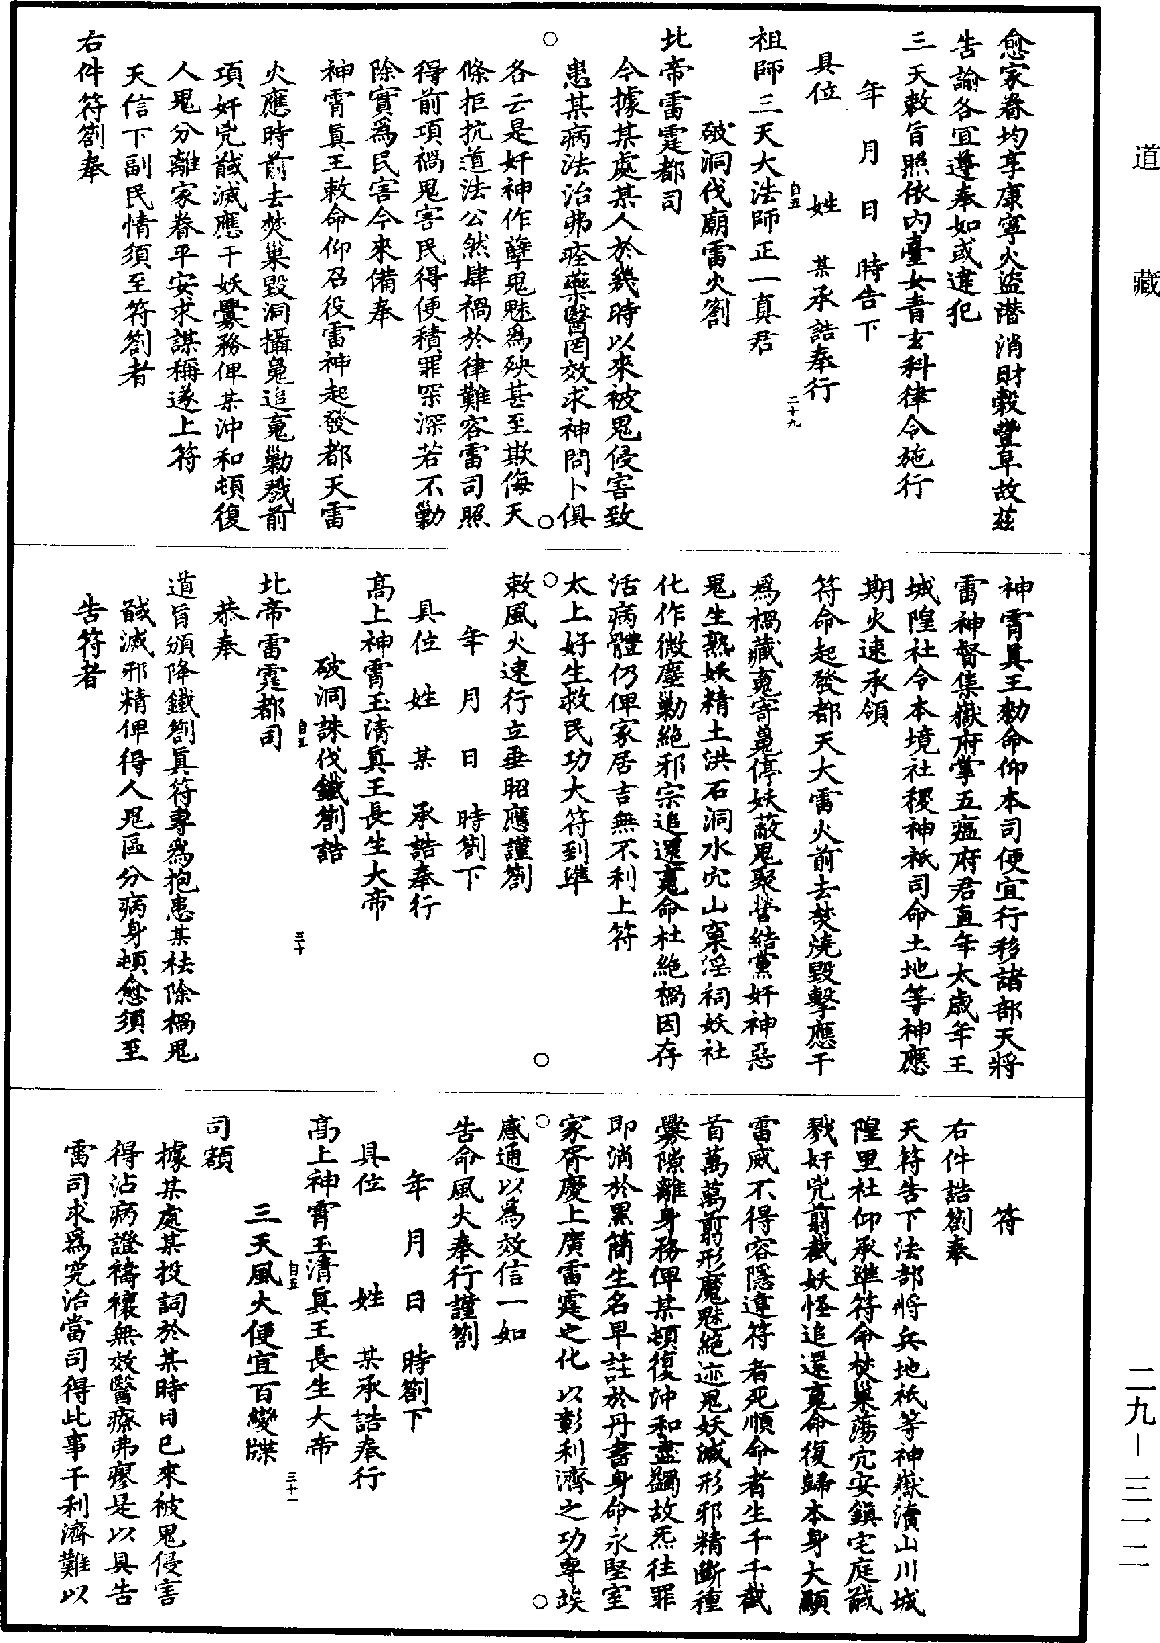 道藏
愈家眷均享康寧火盜潛消財穀豐阜故茲
告諭各宜遵奉如或違犯
三天敕旨照依內臺女青玄科律令施行
年月日時告下
具位姓某承誥奉行
祖師三天大法師正一真君
破洞伐廟雷火劄
北帝雷霆都司
今據某處某人於幾時以來被鬼侵害致
患某病法治弗痊藥醫罔效求神問卜俱
各云是奸神作孽鬼魅為殃甚至欺侮天
條拒抗道法公然肆禍於律難容雷司照
得前項禍鬼害民得便積罪罙深若不勦
除實為民害今來備奉
神霄真王敕命仰召役雷神起發都天雷
火應時前去焚巢毀洞攝鬼追䰟勦戮前
項奸兇馘滅應干妖釁務俾某沖和頓復
人鬼分離家眷平安求謀稱遂上符
天信下副民情須至符劄者
右件符劄奉
神霄真王敕命仰本司便宜行移諸部天將
雷神督集嶽府掌五瘟府君直年太歲年王
城隍社令本境社稷神祇司命土地等神應
期火速承領
符命起發都天大雷火前去焚燒毀擊應干
為禍藏䰟寄鬼停妖蔽鬼聚營結黨奸神惡
鬼生熟妖精土洪石洞水穴山窠淫祠妖社
化作微塵勦絕邪宗追還䰟命杜絕禍因存
活病體仍俾家居吉無不利上符
太上好生救民功大符到準
敕風火速行立垂昭應謹劄
年月日時劄下
具位姓某承誥奉行
高上神霄玉清真王長生大帝
破洞誅伐鐵劄誥
北帝雷霆都司
恭奉
道旨頒降鐵劄真符專為抱患某祛除禍鬼
馘滅邪精俾得人鬼區分病身頓愈須至
告符者
符
右件誥劄奉
天符告下法部將兵地祇等神嶽瀆山川城
隍里社仰承準符命焚巢蕩穴安鎮宅庭馘
戮奸兇剪截妖怪追還䰟命復歸本身大顯
雷威不得容隱違符者死順命者生千千截
首萬萬剪形魔魅絕迹鬼妖滅形邪精斷種
釁隙離身務俾某頓復沖和盡蠲故炁往罪
即消於黑簡生名早註於丹書身命永堅室
家胥慶上廣雷霆之化以彰利濟之功專俟
感通以為效信一如
告命風火奉行謹劄
年月日時劄下
具位姓某承誥奉行
高上神霄玉清真王長生大帝
三天風火便宜百變牒
司額
據某處某投詞於某時日已來被鬼侵害
得沾病證禱禳無效醫療弗瘳是以具告
雷司求為究治當司得此事干利濟難以
二九－三一二